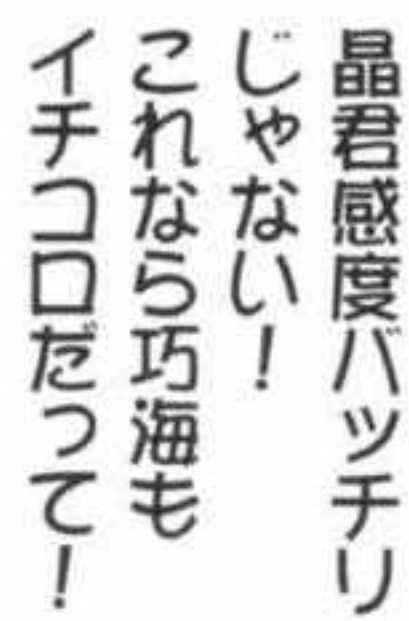 晶君感度バッチリ
じゃない！
これなら巧海も
イチコロだって！